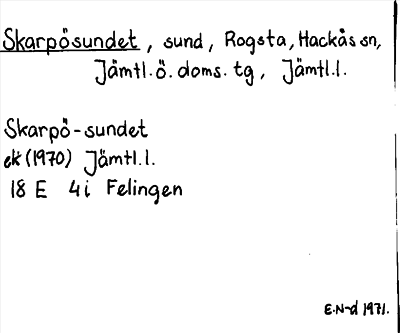 Skarpösundet, sund, Rogsta, Hackås sn,
Jämtl. ö. doms. tg, Jämtl.l.
Skarpö-sundet
ek (1970) Jämtl.l.
18 E 4i Felingen
E.N-d 1971.